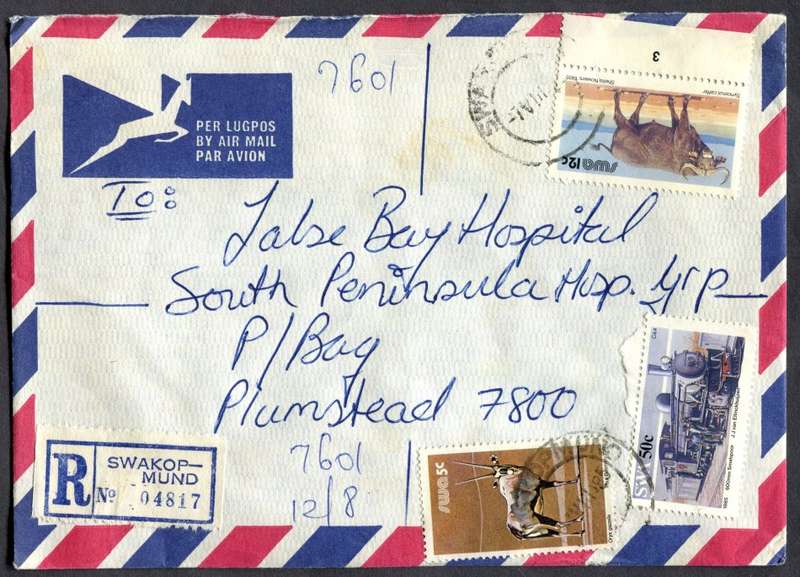 7601
PER LUGPOS
BY AIR MAIL
PAR AVION
3
Syncerus caffer
swa 12c
To:
False Bay Hospital
South Peninsula Hosp. Grp
P/Bag
Plumstead 7800
7601
12/8
R
SWAKOP-
MUND
No 04817
swa 5c
Oryx gazella
SWA 50c
1985 600mm Smalspoor